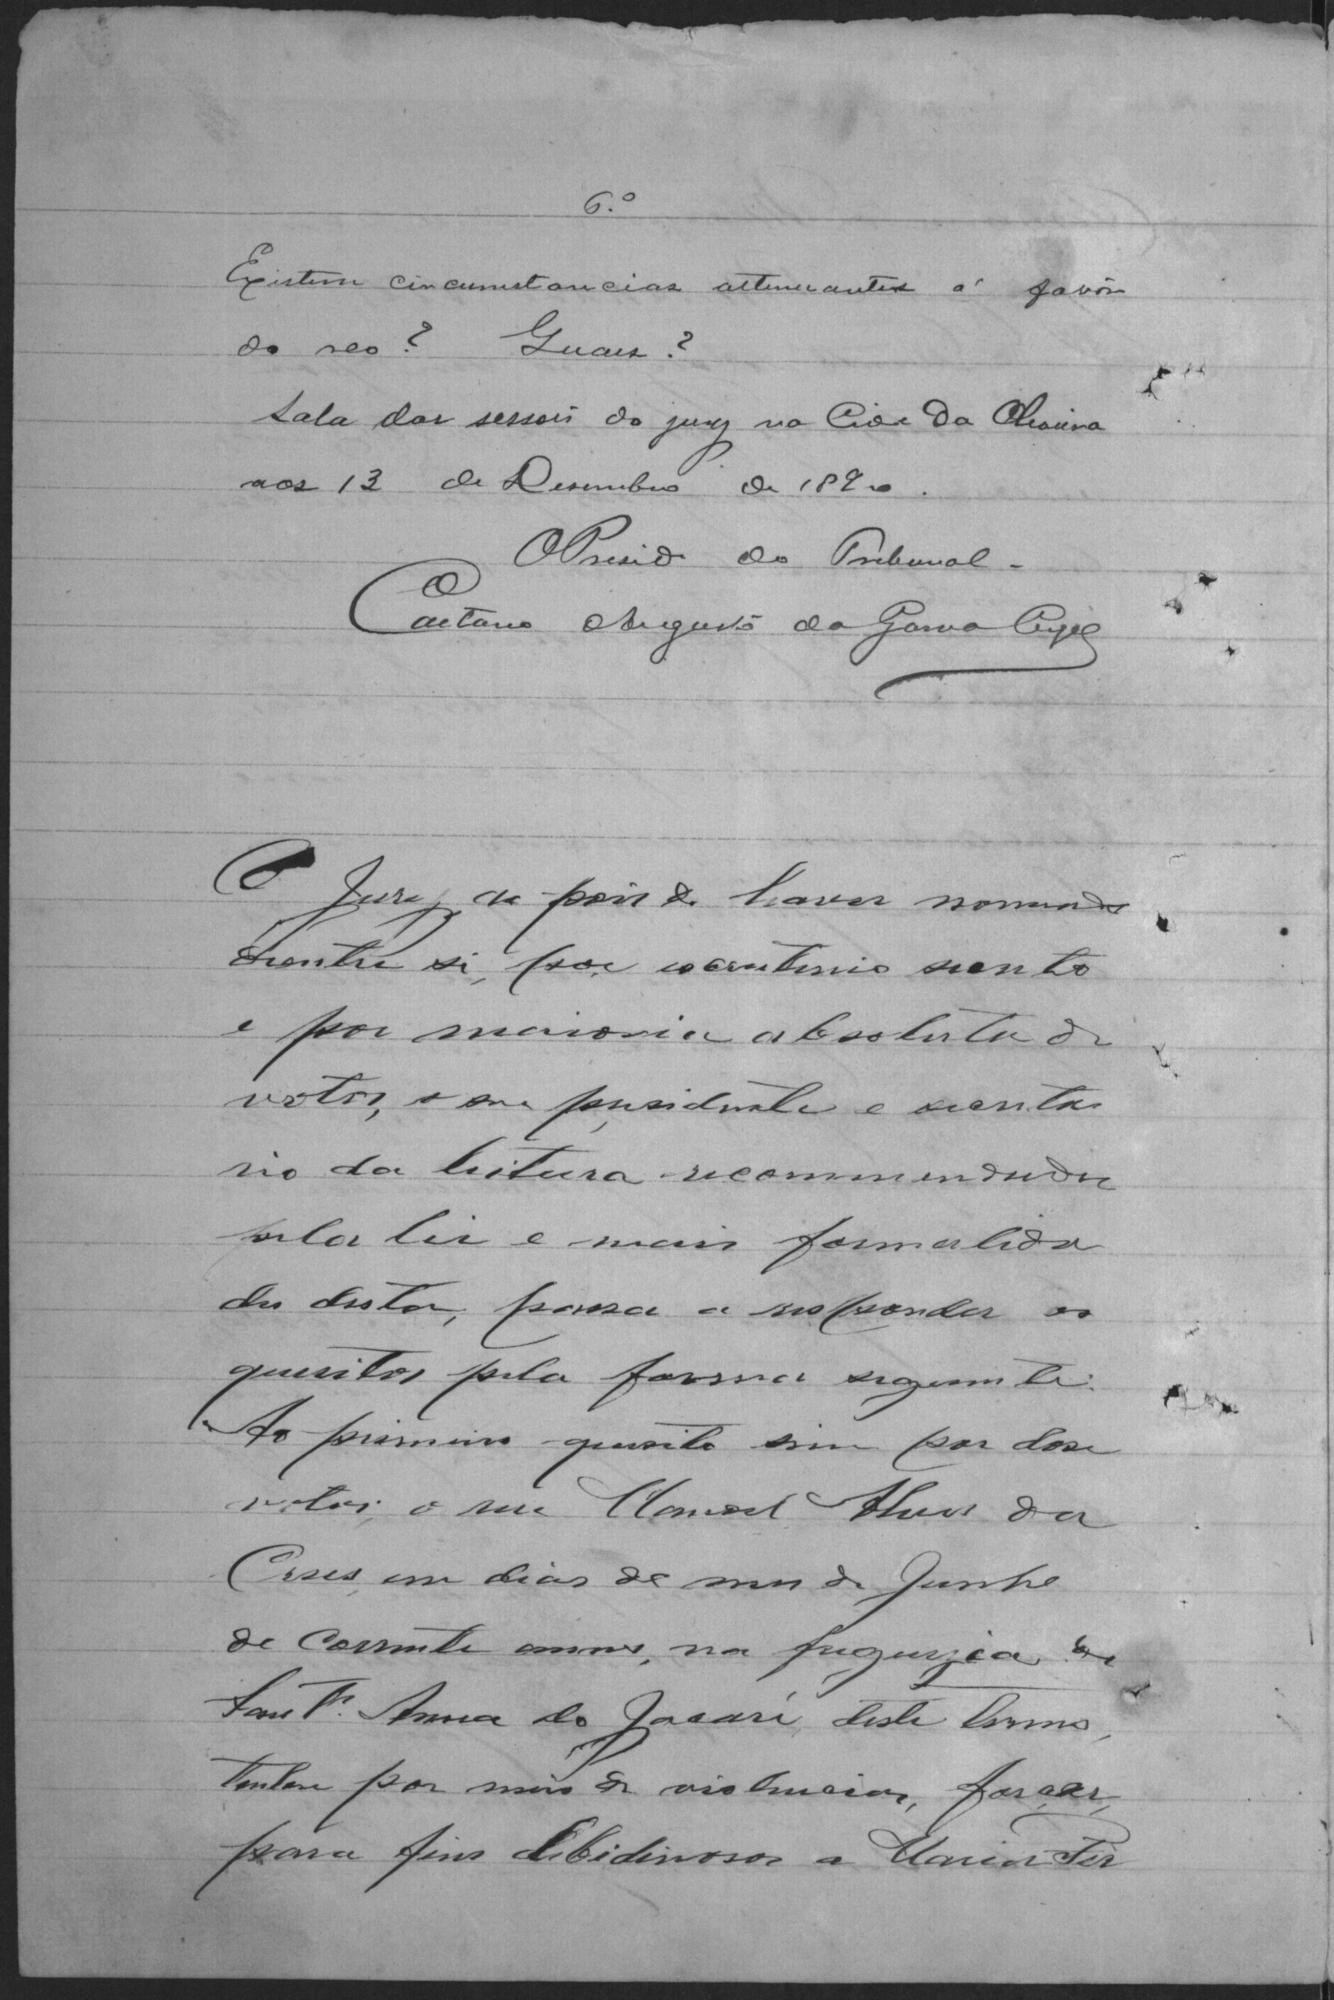 6.º
Existem circumstancias attenuantes á favôr
do reo? Quaes?
Sala das sessoēs do jury na Cide da Oliveira
aos 13 de Desembro de 1890.
O Presid do Tribunal -
Caetano Augusto da Gama
O Jury, de pois de haver nomeado
dentre si, por escrutinio secreto
e por maioria absoluta de
votos, o seu presidente e secreta
rio da leitura recommendada
pela lei e mais formalida
des desta, passa a responder os
quesitos pela forma seguinte:
Ao primeiro quesito sim por dose
votos, o reu Manoel Alves da
em dias de mes de Junho
de corrente anno, na freguezia de
Sant'. Anna do Jacaré, deste termo,
tentou por meio de violencias, forçar,
para fins libidinosos a Maria